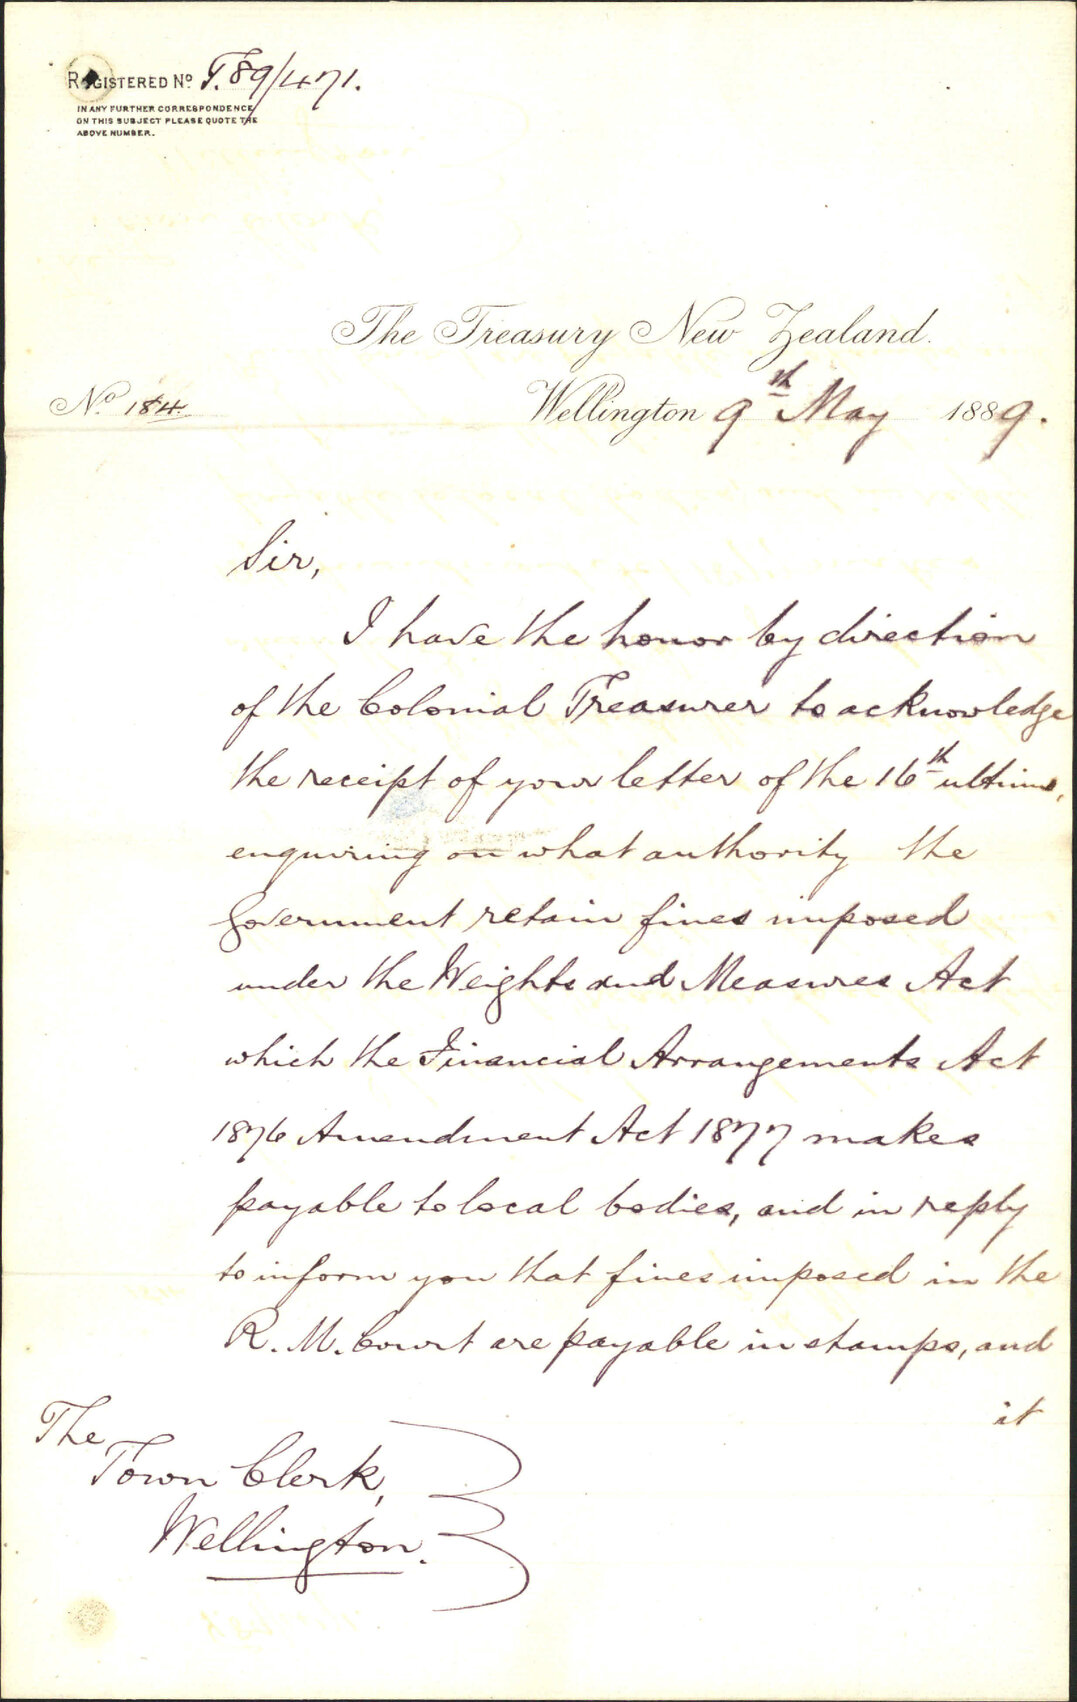 REGISTERED No T.89/471.
IN ANY FURTHER CORRESPONDENCE
ON THIS SUBJECT PLEASE QUOTE THE
ABOVE NUMBER.
The Treasury New Zealand.
No. 184.
Wellington 9th May 1889.
Sir,
I have the honor by direction
of the Colonial Treasurer to acknowledge
the receipt of your letter of the 16th ultimo,
enquiring on what authority the
Government retain fines imposed
under the Weights and Measures Act
which the Financial Arrangements Act
1876 Amendment Act 1877 makes
payable to local bodies, and in reply
to inform you that fines imposed in the
R. M. Court are payable in stamps, and
it
The
Town Clerk,
Wellington.